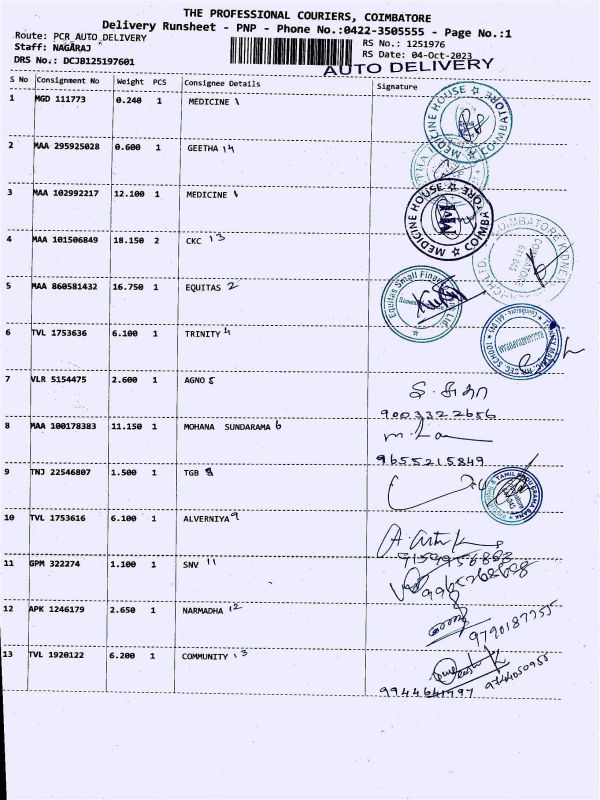 THE PROFESSIONAL COURIERS, COIMBATORE
Delivery Runsheet - PNP - Phone No.:0422-3505555 - Page No.:1
Route: PCR AUTO DELIVERY
RS No.: 1251976
Staff: NAGARAJ
RS Date: 04-Oct-2023
DRS No.: DCJB125197601
AUTO DELIVERY
S No Consignment No Weight PCS Consignee Details Signature
1 MGD 111773 0.240 1 MEDICINE 1
MEDICINE HOUSE ☆ COIMBATORE ☆
2 MAA 295925028 0.600 1 GEETHA 14
3 MAA 102992217 12.100 1 MEDICINE 1
MEDICINE HOUSE ☆ COIMBATORE ☆
4 MAA 101506849 18.150 2 CKC 13
5 MAA 860581432 16.750 1 EQUITAS 2
Equitas Small Finance
6 TVL 1753636 6.100 1 TRINITY 4
7 VLR 5154475 2.600 1 AGNO 5
9003322656
8 MAA 100178383 11.150 1 MOHANA SUNDARAMA 6
9655215849
9 TNJ 22546807 1.500 1 TGB 8
10 TVL 1753616 6.100 1 ALVERNIYA 9
11 GPM 322274 1.100 1 SNV 11
12 APK 1246179 2.650 1 NARMADHA 12
9790187755
13 TVL 1920122 6.200 1 COMMUNITY 13
9744050955
9944641797